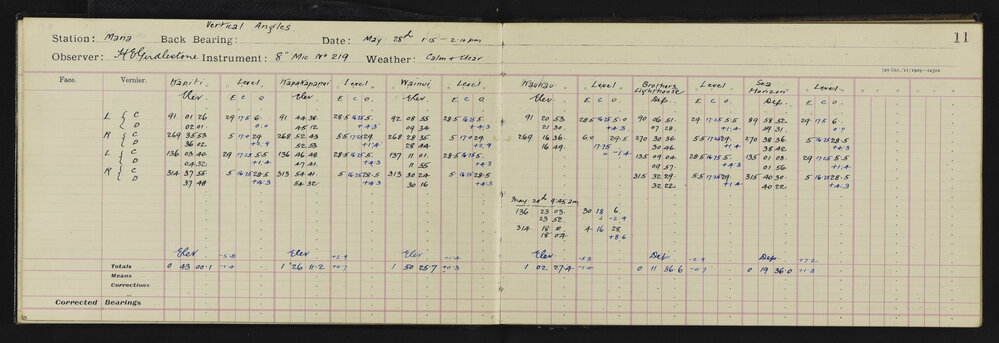 Vertical Angles.
Station: Mana Back Bearing: Date: May 28th 1·15 – 2·10 pm 11
Observer: H E Girdlestone Instrument: 8" Mic No 219 Weather: Calm & Clear
Face. Vernier. Kapiti Level Kapakapanui Level Wainui Level Kaukau Level Brothers Lighthouse Level Sea Horizon Level
Elev. E C O. Elev. E C O. Elev. E C O. Elev. E C O. Dep. E C O. Dep. E C O.
L C 91 01 26 29 17·5 6· 91 44 38 28·5 16·25 5· 92 08 55 28·5 16·25 5· 91 20 53 28·5 16·75 5·0 90 06 51 29 17·25 5·5 89 58 52 29 17·5 6·
D 02 01 0·0 45 12 +4·3 09 34 +4·3 21 30 +4·3 07 28 +1·4 59 31 0·0
R C 269 35 53 5 17·0 29 268 52 43 5·5 17·25 29 268 28 35 5 17·0 29 269 16 36 6·0 29·5 270 30 36 5·5 17·25 29 270 38 36 5 16·75 28·5
D 36 02 +2·9 52 53 +1·4 28 44 +2·9 16 49 17·75 = -1·4 30 46 +1·4 38 42 +4·3
L C 136 03 40 29 17·25 5·5 136 46 48 28·5 16·75 5· 137 11 01 28·5 16·75 5· 135 09 04 28·5 16·75 5· 135 01 03 29 17·25 5·5
D 04 32 +1·4 47 41 +4·3 11 55 +4·3 09 57 +4·3 01 56 +1·4
R C 314 37 55 5 16·75 28·5 313 54 41 5 16·75 28·5 313 30 24 5 16·75 28·5 315 32 29 5·5 17·25 29 315 40 30 5 16·75 28·5
D 37 48 +4·3 54 32 +4·3 30 16 +4·3 32 22 +1·4 40 22 +4·3
May 29th 9·45 am
136 23 03 30 18 6·
23 52 -2·9
314 18 4 16 28
18 04 +8·6
Elev -5·8 Elev +2·9 Elev +1·4 Elev Dep -2·9 Dep +7·2
Totals 0 43 00·1 -1·4 1 26 11·2 +0·7 1 50 25·7 +0·3 1 02 27·4 -1·4 0 11 36·6 -0·7 0 19 36·0 +1·8
Means
Corrections
Corrected Bearings